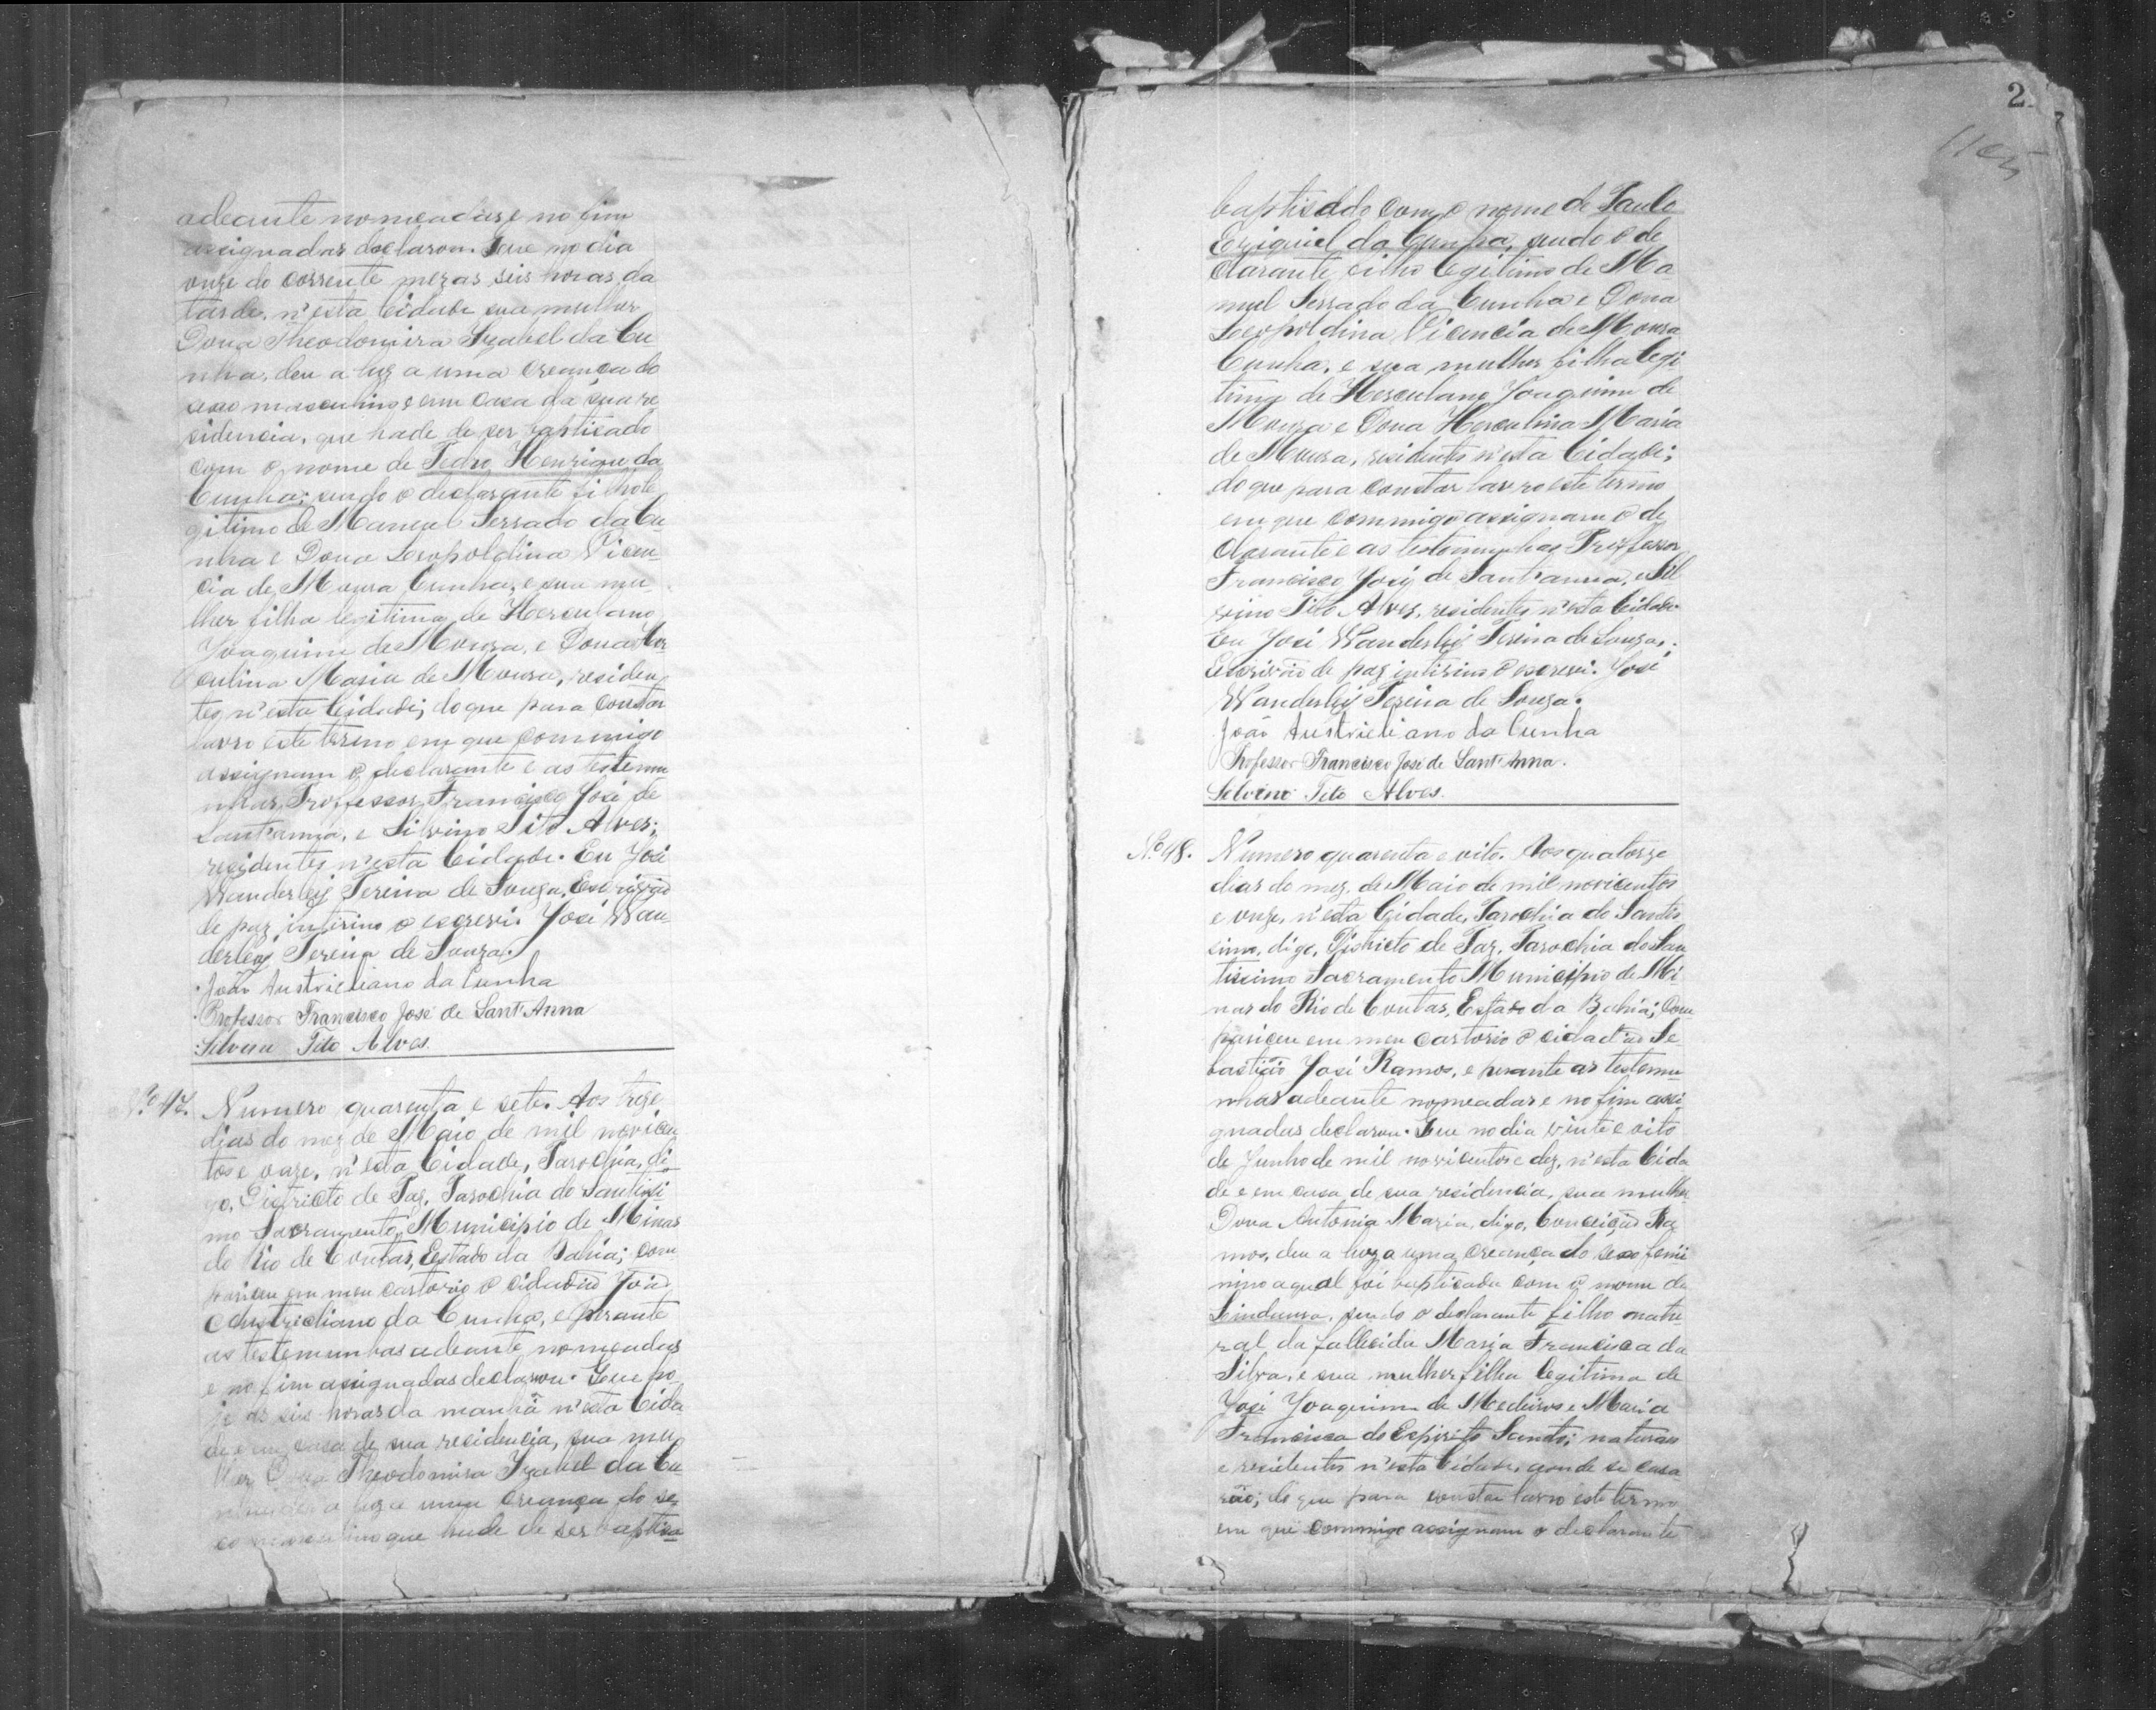 adeante nomeadas e no fim
assignadas declarou. Que no dia
onze do corrente mez as seis horas da
tarde, n'esta Cidade sua mulher
Dona Theodomira Izabel da Cu
nha, deu a luz a uma creança do
sexo masculino e em casa da sua re
sidencia, que hade de ser baptisado
com o nome de Pedro Henrique da
Cunha; sendo o declarante filho le
gitimo de Manuel Serrado da Cu-
nha e Dona Leopoldina Vicen-
cia de Moura Cunha, e sua mu-
lher filha legitima de Herculano
Joaquim de Moura, e Dona Her-
culina Maria de Moura, residen
tes n'esta Cidade; do que para constar
lavro este termo em que commigo
assignam o declarante e as testemu
nhas, Professor Francisco José de
Sant'anna, e Silvino Tito Alves;
residentes n'esta Cidade. Eu José
Wanderley Pereira de Souza, Escrivão
de paz interino o escrevi. José Wan
derley Pereira de Souza.
João Austricliano da Cunha
Professor Francisco José de Sant'Anna
Silvino Tito Alves.
Nº 47. Numero quarenta e sete. Aos treze
dias do mez de Maio de mil novicen
tos e onze, n'esta Cidade, Parochia, di
go, Districto de Paz, Parochia do Santissi
mo Sacramento, Municipio de Minas
do Rio de Contas, Estado da Bahia; com
pariceu em meu cartorio o cidadão João
Austricliano da Cunha, e perante
as testemunhas adeante nomeadas
e no fim assignadas declarou. Que ho
je as seis horas da manhã n'esta Cida
de e em casa de sua residencia, sua mu
lher Dona Theodomira Izabel da Cu
nha deu a luz a uma creança do se
xo masculino que hade de ser baptisa
2
baptisado com o nome de Paulo
Eziquiel da Cunha, sendo o de
clarante filho legitimo de Ma
nuel Serrado da Cunha e Dona
Leopoldina Vicencia de Moura
Cunha, e sua mulher filha legi
tima de Herculano Joaquim de
Moura e Dona Herculina Maria
de Moura, residentes n'esta Cidade;
do que para constar lavro este termo
em que commigo assignam o de
clarante e as testemunhas Professor
Francisco José de Sant'anna, e Sil
vino Tito Alves, residentes n'esta Cidade
Eu José Wanderley Pereira de Souza,
Escrivão de paz interino o escrevi. José
Wanderley Pereira de Souza.
João Austricliano da Cunha
Professor Francisco José de Sant'Anna.
Silvino Tito Alves.
Nº 48. Numero quarenta e oito. Aos quatorze
dias do mez de Maio de mil novicentos
e onze, n'esta Cidade, Parochia do Santis
simo, digo, Districto de Paz, Parochia do San
tissimo Sacramento Municipio de Mi
nas do Rio de Contas, Estado da Bahia; com
pariceu em meu cartorio o cidadão Se
bastião José Ramos, e perante as testemu
nhas adeante nomeadas e no fim assi
gnadas declarou. Que no dia vinte e oito
de Junho de mil novicentos e dez, n'esta Cida
de e em casa de sua residencia, sua mulher
Dona Antonia Maria, digo, Conceição Ra
mos, deu a luz a uma creança do sexo femi
nino a qual foi baptisada com o nome de
Lindaura, sendo o declarante filho natu
ral da fallecida Maria Francisca da
Silva, e sua mulher filha legitima de
José Joaquim de Medeiros e Maria
Francisca do Espirito Santo; naturaes
e residentes n'esta Cidade, aonde se casa
rão; do que para constar lavro este termo
em que commigo assignam o declarante